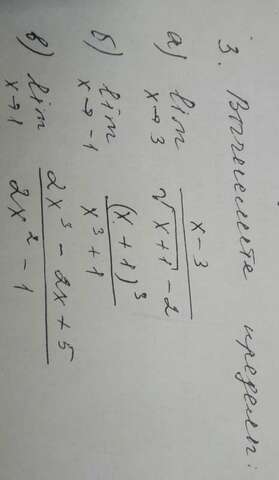 3. Вычислите пределы:
а) lim x→3 (x-3)/(√(x+1) - 2)
б) lim x→-1 (x+1)³/(x³+1)
в) lim x→1 (2x³-2x+5)/(2x²-1)